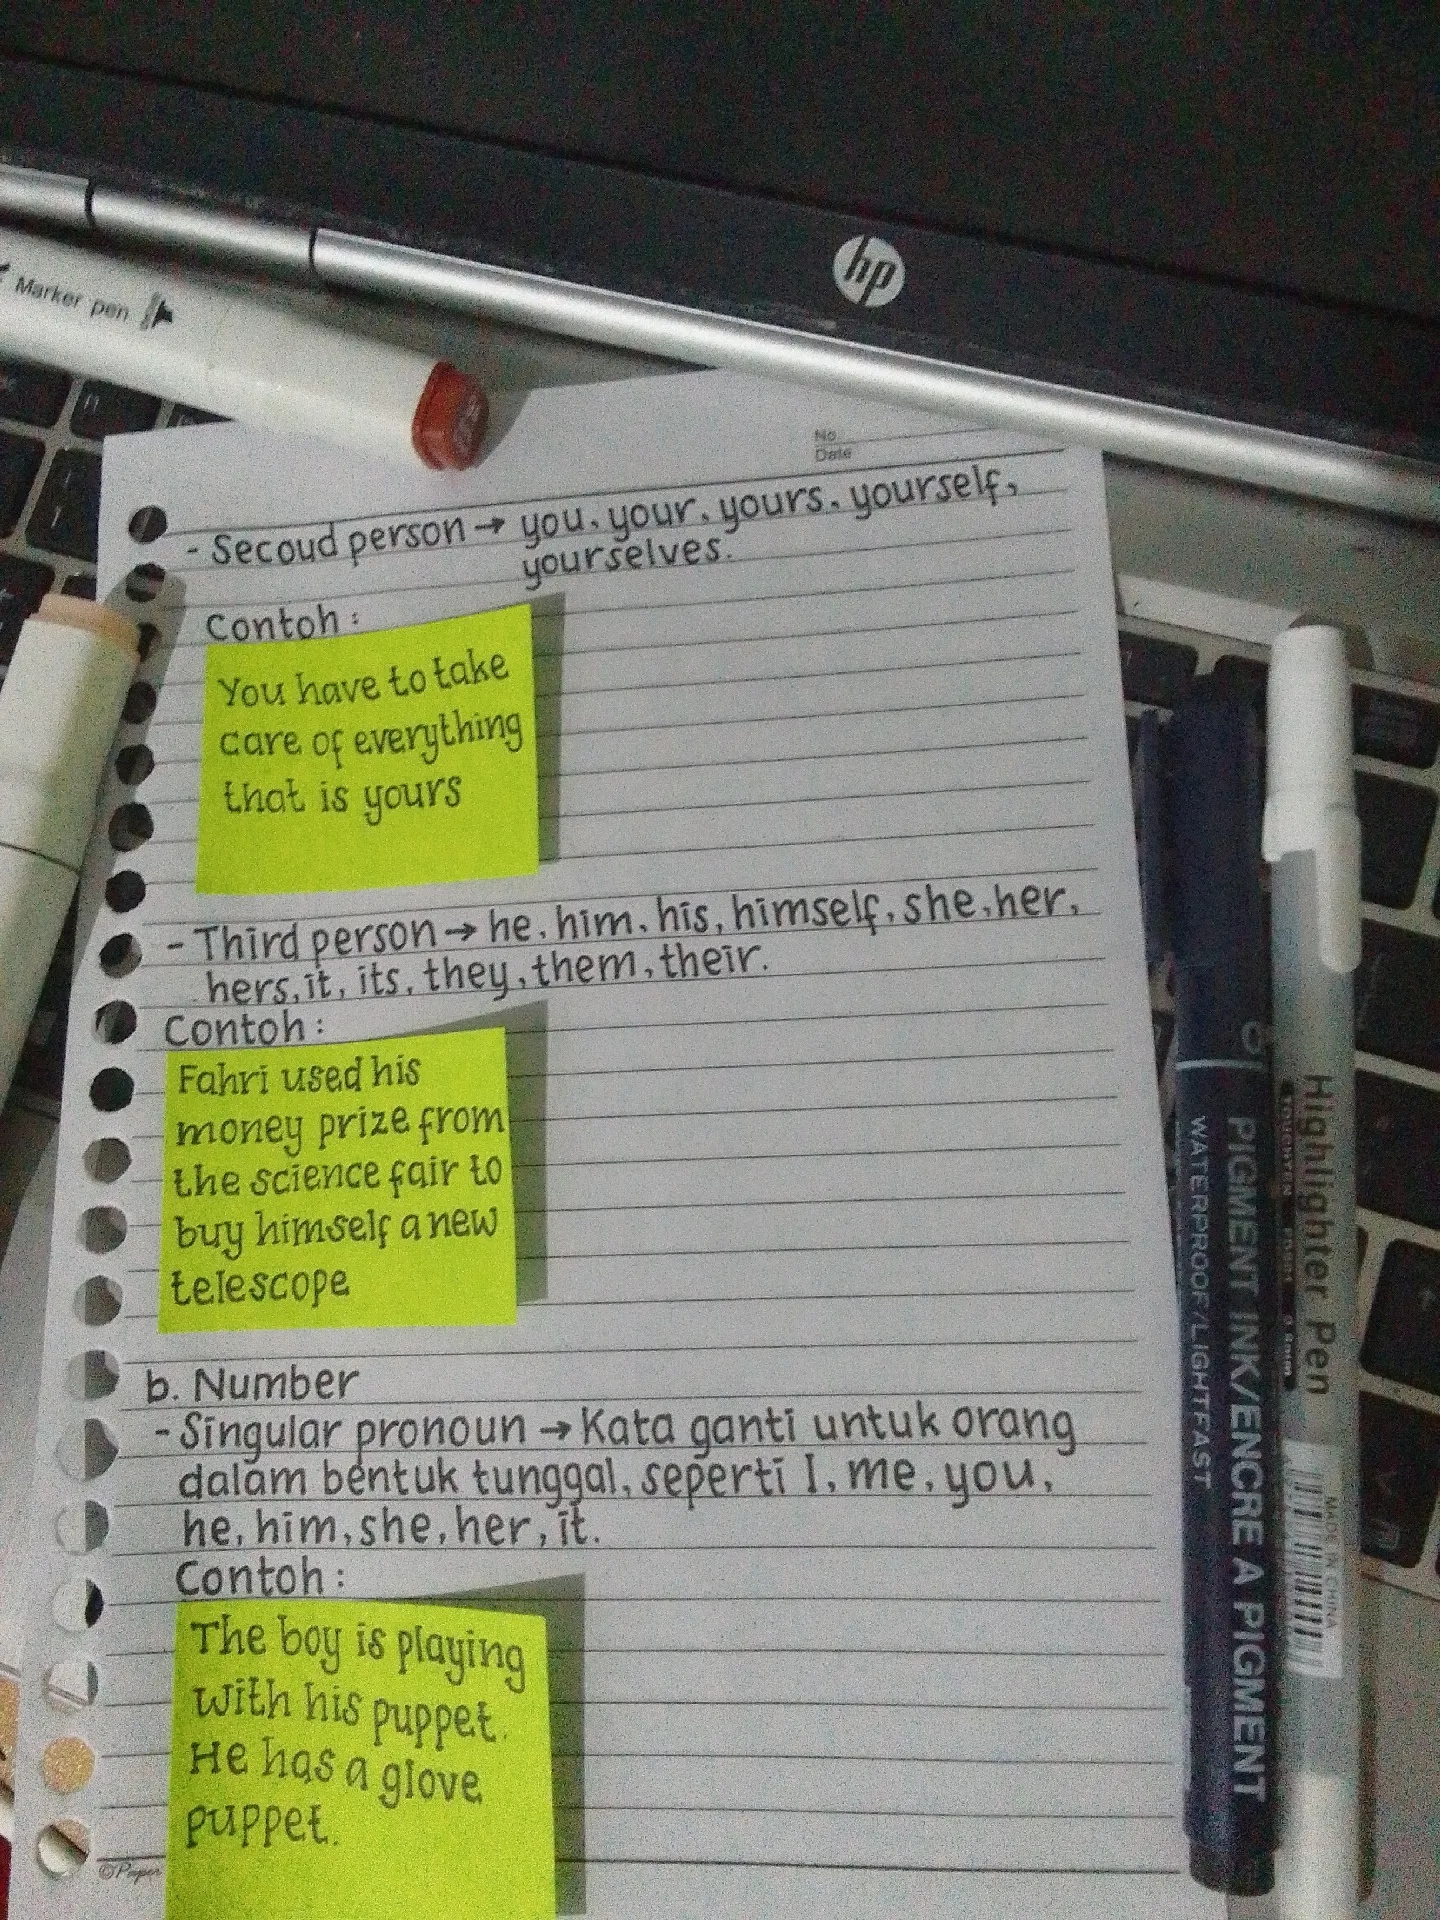 hp
Marker pen
No
Date
- Secoud person → you, your, yours, yourself,
yourselves.
Contoh :
You have to take
care of everything
that is yours
- Third person → he, him, his, himself, she, her,
hers, it, its, they, them, their.
Contoh :
Fahri used his
money prize from
the science fair to
buy himself a new
telescope
b. Number
- Singular pronoun → Kata ganti untuk orang
dalam bentuk tunggal, seperti I, me, you,
he, him, she, her, it.
Contoh :
The boy is playing
with his puppet.
He has a glove
puppet.
©Paper
PIGMENT INK/ENCRE A PIGMENT
WATERPROOF/LIGHTFAST
Highlighter Pen
MADE IN CHINA